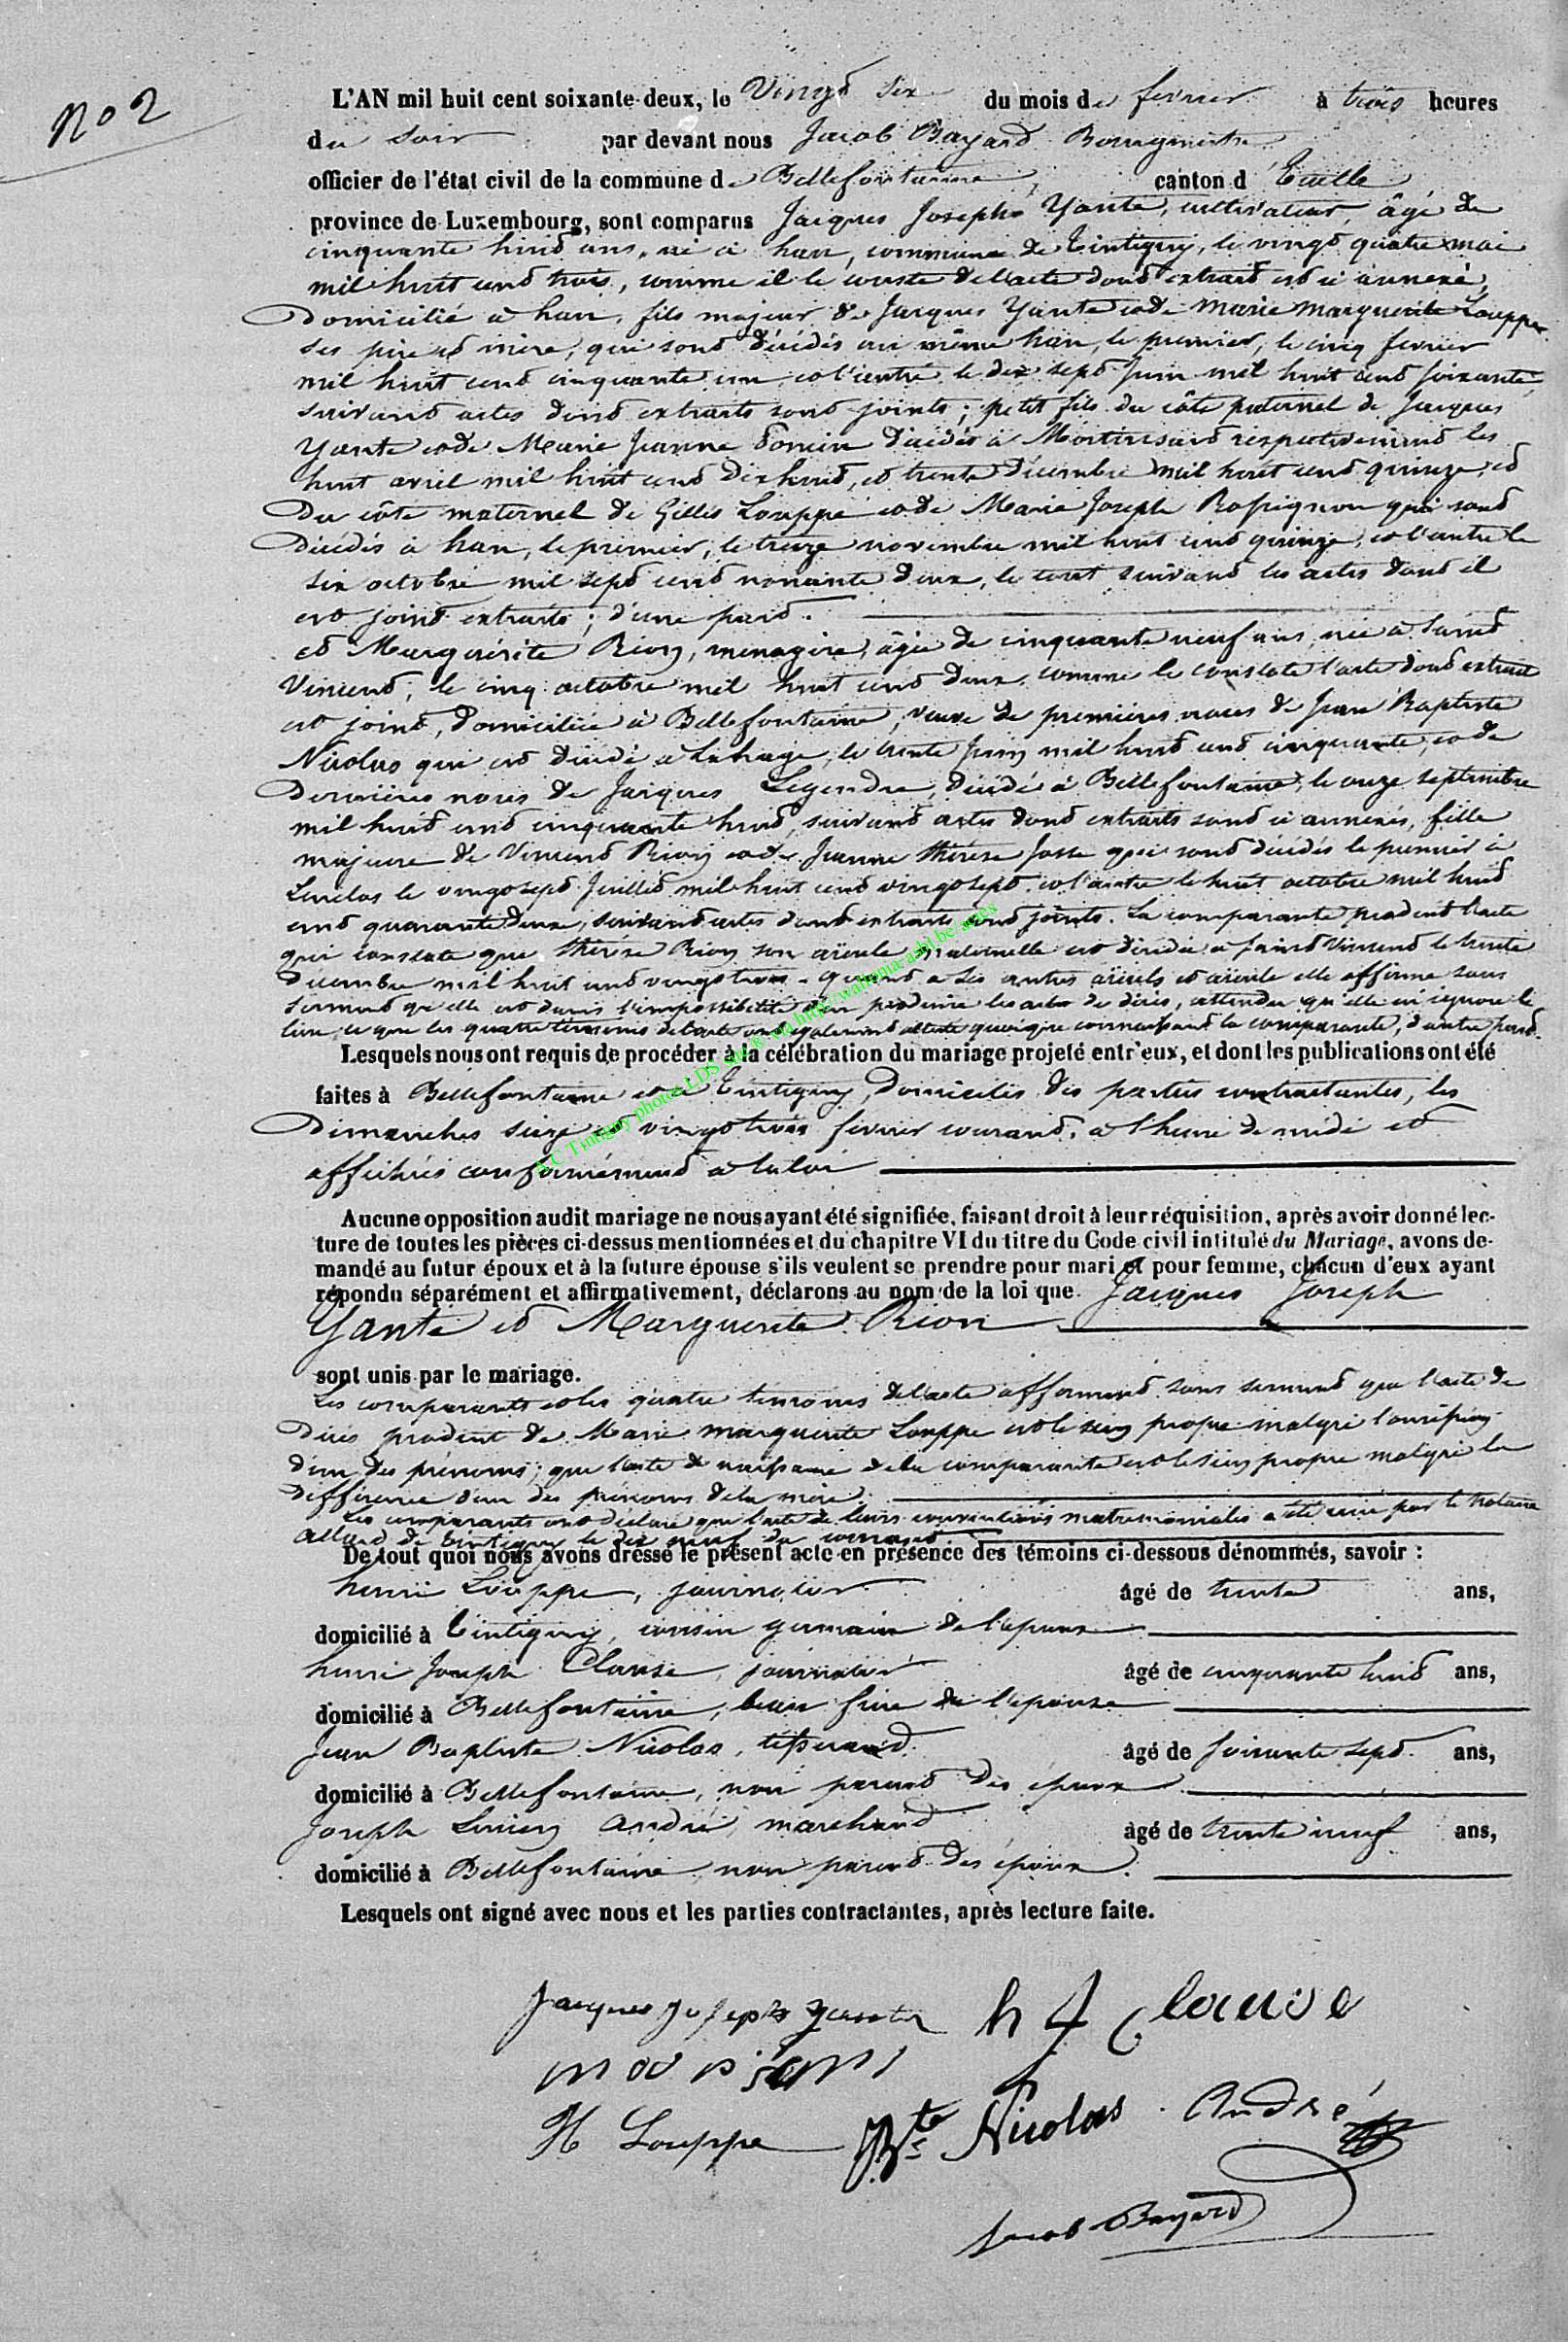 No 2
L'AN mil huit cent soixante-deux, le Vingt six du mois de février à trois heures
du soir par devant nous Jacob Bayard Bourgmestre
officier de l'état civil de la commune de Bellefontaine, canton d'Etalle
province de Luxembourg, sont comparus Jacques Joseph Yante, cultivateur, âgé de
cinquante huit ans, né à han, commune de Tintigny, le vingt quatre mai
mil huit cent trois, comme il le conste de l'acte dont extrait est ci annexé,
Domicilié à han, fils majeur de Jacques Yante et de Marie Marguerite Louppe
ses père et mère, qui sont décédés au même han, le premier, le cinq fevrier
mil huit cent cinquante un et l'autre le dix sept Juin mil huit cent soixante,
suivant actes dont extraits sont joints; petit fils du côté paternel de Jacques
Yante et de Marie Jeanne décédés à Mortinsart respectivement les
huit avril mil huit cent dix huit, et trente Décembre mil huit cent quinze, et
Du côté maternel de Gillis Louppe et de Marie Joseph Rossignon qui sont
Décédés à han, le premier, le treize novembre mil huit cent quinze, et l'autre le
six octobre mil sept cent nonante deux, le tout suivant les actes dont il
est joint extraits; d'une part.
et Marguerite Rion, menagère, âgée de cinquante neuf ans, née à Saint
Vincent, le cinq octobre mil huit cent deux, comme le constate l'acte dont extrait
est joint, Domiciliée à Bellefontaine, veuve de premières noces de Jean Baptiste
Nicolas qui est décédé à Lahage, le trente Juin mil huit cent cinquante, et de
Dernières noces de Jacques Legendre, décédé à Bellefontaine, le onze septembre
mil huit cent cinquante huit, suivant actes dont extraits sont ci annexés, fille
majeure de Vincent Rion et de Jeanne thérèse Josse qui sont décédés le premier à
Lenclos le vingt sept Juillet mil huit cent vingt sept et l'autre le huit octobre mil huit
cent quarante deux, suivant actes dont extraits sont joints. La comparante produit l'acte
qui constate que thérèse Rion son aïeule maternelle est décédée à saint Vincent le trente
Décembre mil huit cent vingt trois. Quant à ses autres aïeuls et aïeule elle affirme sous
serment qu'elle est dans l'impossibilité d'en produire les actes de décès, attendu qu'elle en ignore le
lieu, ce que les quatre témoins de l'acte ont également attesté quoique connaissant la comparante, d'autre part.
Lesquels nous ont requis de procéder à la célébration du mariage projeté entr'eux, et dont les publications ont été
faites à Bellefontaine et à Tintigny, Domiciles des parties contractantes, les
Dimanches seize et vingt trois février courant, à l'heure de midi et
affichées conformément à la loi
Aucune opposition audit mariage ne nous ayant été signifiée, faisant droit à leur réquisition, après avoir donné lec-
ture de toutes les pièces ci-dessus mentionnées et du chapitre VI du titre du Code civil intitulé du Mariage, avons de-
mandé au futur époux et à la future épouse s'ils veulent se prendre pour mari et pour femme, chacun d'eux ayant
répondu séparément et affirmativement, déclarons au nom de la loi que Jacques Joseph
Yante et Marguerite Rion
sont unis par le mariage.
Les comparants et les quatre témoins de l'acte affirment sous serment que l'acte de
Décès produit de Marie marguerite Louppe est le sien propre malgré l'omission
d'un des prénoms; que l'acte de naissance de la comparante est le sien propre malgré la
différence d'un des prénoms de la mère.
Les comparants ont déclaré que l'acte de leurs conventions matrimoniales a été reçu par le Notaire
Allard de Tintigny le dix neuf du courant
De tout quoi nous avons dressé le présent acte en présence des témoins ci-dessous dénommés, savoir :
henri Louppe, journalier âgé de trente ans,
domicilié à Tintigny, cousin germain de l'époux
henri Joseph Clause, journalier âgé de cinquante huit ans,
domicilié à Bellefontaine, beau frère de l'épouse
Jean Baptiste Nicolas, tisserand âgé de soixante sept ans,
domicilié à Bellefontaine, non parent des époux
Joseph Lucien André, marchand âgé de trente neuf ans,
domicilié à Bellefontaine, non parent des époux
Lesquels ont signé avec nous et les parties contractantes, après lecture faite.
jacques josephs yante h J Clause
H Louppe J Bte Nicolas André
Jacob Bayard
A.C Tintigny photos LDS via http://wallonia-asbl.be/actes